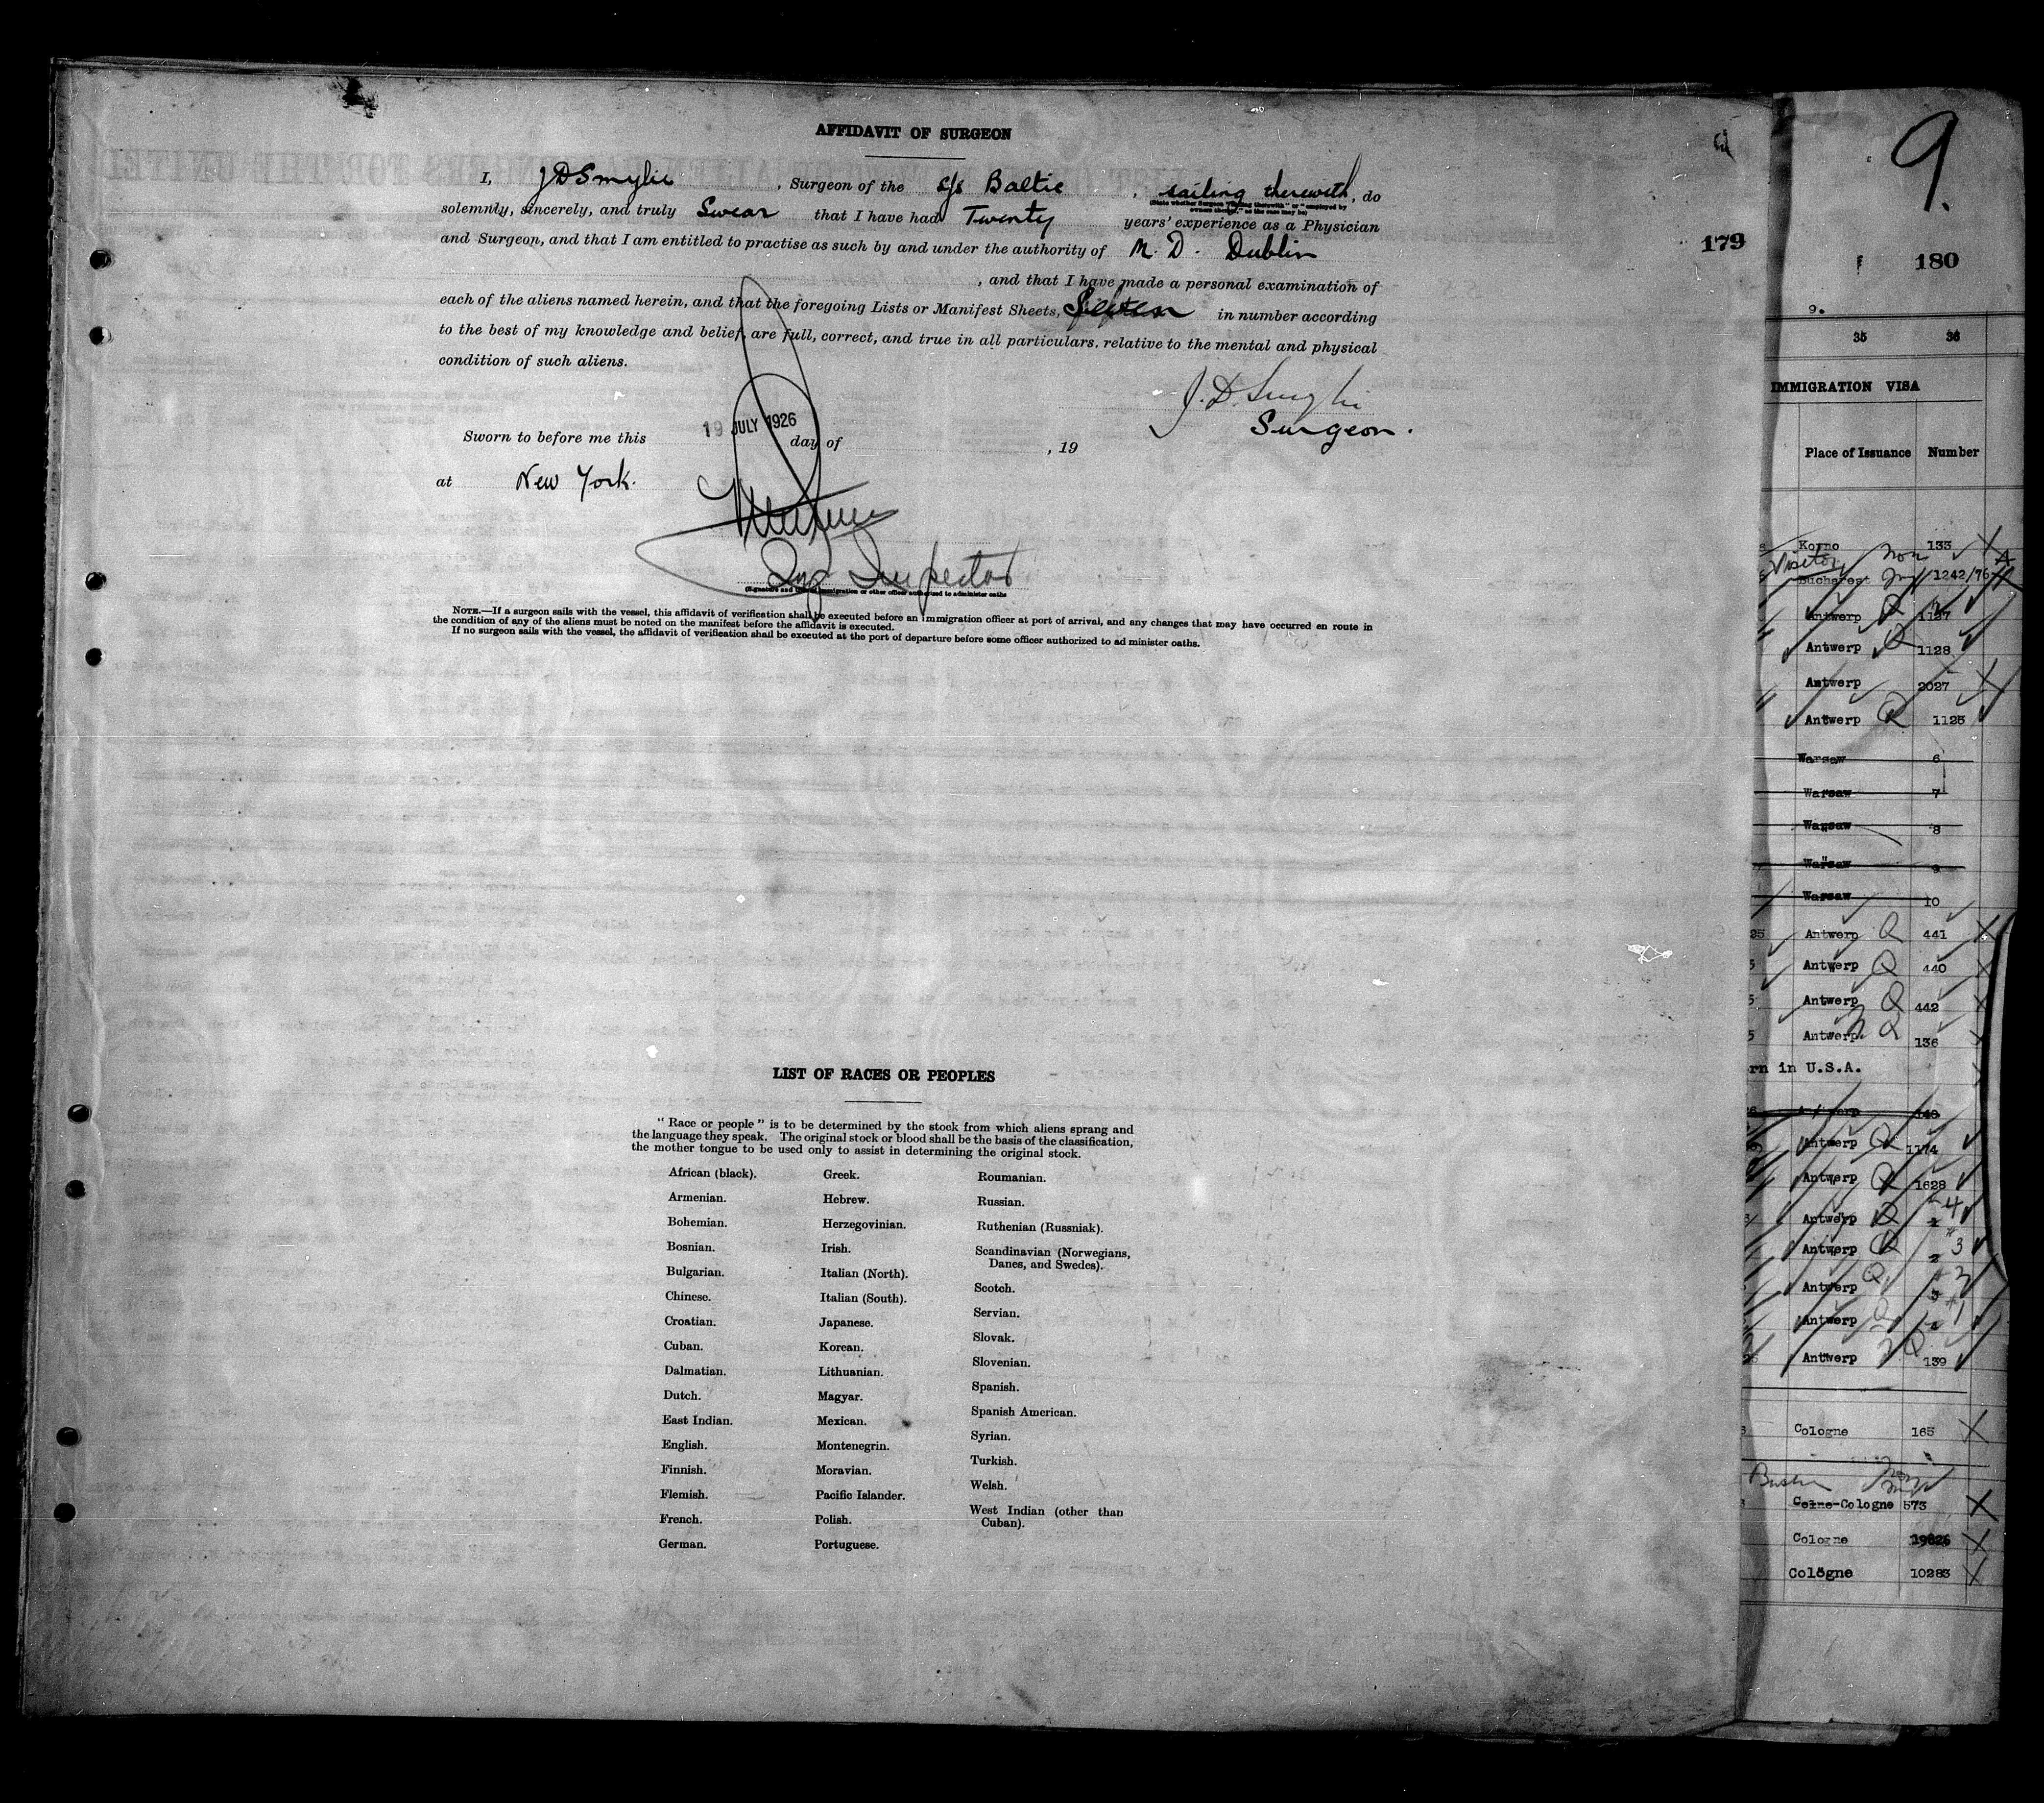 AFFIDAVIT OF SURGEON
I, J D Smylie, Surgeon of the s/s Baltic, sailing therewith, do
(State whether Surgeon "sailing therewith" or "employed by
owners thereof," as the case may be)
solemnly, sincerely, and truly Swear that I have had Twenty years' experience as a Physician
and Surgeon, and that I am entitled to practise as such by and under the authority of M. D. Dublin
, and that I have made a personal examination of
each of the aliens named herein, and that the foregoing Lists or Manifest Sheets, in number according
to the best of my knowledge and belief, are full, correct, and true in all particulars, relative to the mental and physical
condition of such aliens.
J. D. Smylie
Surgeon.
Sworn to before me this 19 JULY 1926 day of , 19
at New York.
Inspector
(Signature and title of immigration or other officer authorized to administer oaths
NOTE.—If a surgeon sails with the vessel, this affidavit of verification shall be executed before an immigration officer at port of arrival, and any changes that may have occurred en route in
the condition of any of the aliens must be noted on the manifest before the affidavit is executed.
If no surgeon sails with the vessel, the affidavit of verification shall be executed at the port of departure before some officer authorized to ad minister oaths.
LIST OF RACES OR PEOPLES
"Race or people" is to be determined by the stock from which aliens sprang and
the language they speak. The original stock or blood shall be the basis of the classification,
the mother tongue to be used only to assist in determining the original stock.
African (black).
Armenian.
Bohemian.
Bosnian.
Bulgarian.
Chinese.
Croatian.
Cuban.
Dalmatian.
Dutch.
East Indian.
English.
Finnish.
Flemish.
French.
German.
Greek.
Hebrew.
Herzegovinian.
Irish.
Italian (North).
Italian (South).
Japanese.
Korean.
Lithuanian.
Magyar.
Mexican.
Montenegrin.
Moravian.
Pacific Islander.
Polish.
Portuguese.
Roumanian.
Russian.
Ruthenian (Russniak).
Scandinavian (Norwegians,
Danes, and Swedes).
Scotch.
Servian.
Slovak.
Slovenian.
Spanish.
Spanish American.
Syrian.
Turkish.
Welsh.
West Indian (other than
Cuban).
179
9.
180
9.
35 36
IMMIGRATION VISA
Place of Issuance Number
Kovno 133
Visitor
Bucharest 1242/76
Antwerp Q 1127
Antwerp Q 1128
Antwerp 2027
Antwerp Q 1125
Warsaw 6
Warsaw 7
Warsaw 8
Warsaw 9
Warsaw 10
Antwerp Q 441
Antwerp Q 440
Antwerp Q 442
Antwerp Q 136
rn in U.S.A.
Antwerp 140
Antwerp Q 1174
Antwerp Q 1628
Antwerp Q 4
Antwerp Q 2 3
Antwerp Q 3
Antwerp Q 1
Antwerp Q 139
Cologne 165
Colne-Cologne 573
Cologne 19826
Cologne 10283